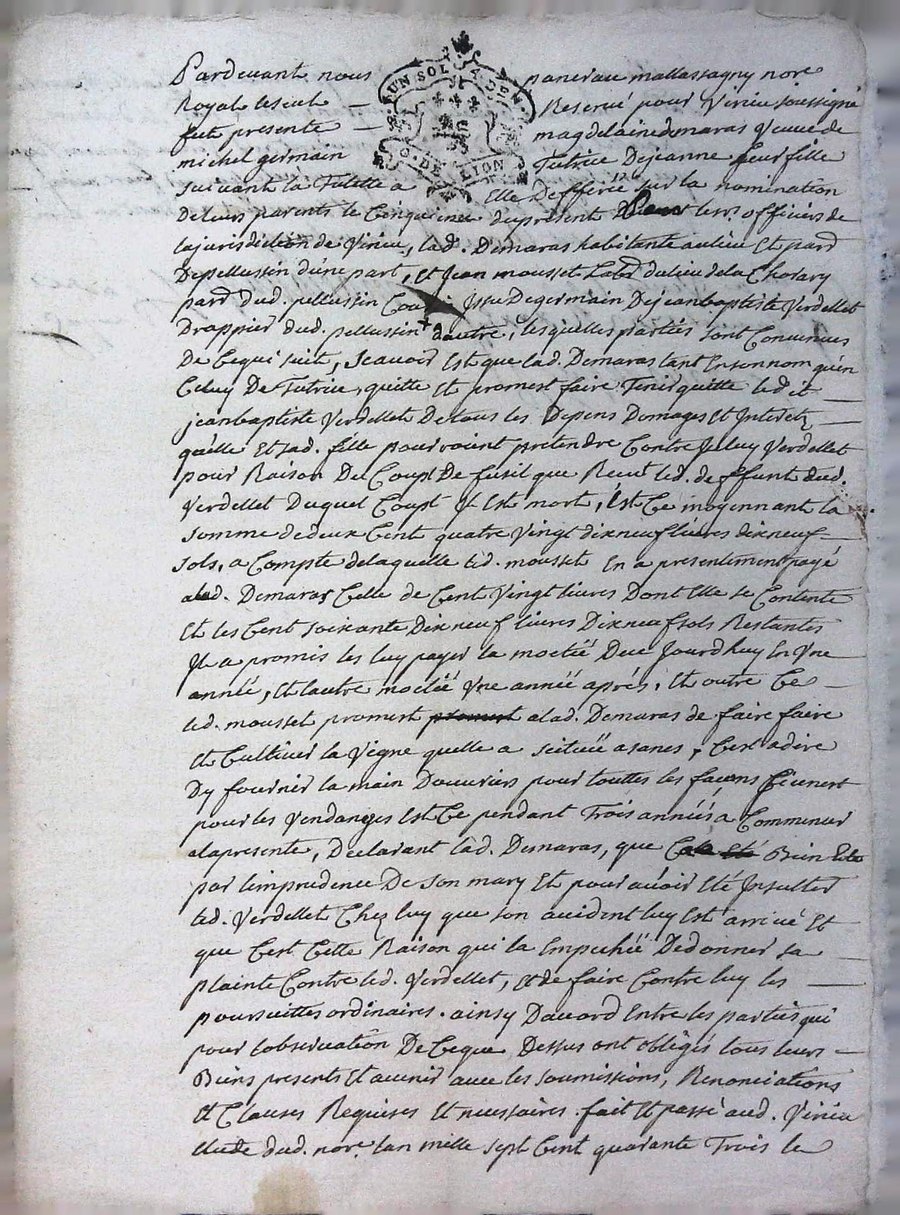 Pardevant nous
UN SOL
G. DE LION
panerau mallassagny nore
Royal
Reservé pour Virieu soussigné
fut presente
magdelaine demaras veuve de
michel germain
Tutrice De jeanne leur fille
suivant la Tutelle a Elle Defferée sur la nomination
De leurs parents le Cinquieme du present les srs officiers de
la jurisdiction de Virieu, lad. Demaras habitante au lieu Et pard
De pellussin d'une part, Et Jean mousset Labr du lieu de la Chorary
pard dud. pellussin issu De germain De jean baptiste Verdellet
Drappier dud. pellussin + dautre, lesquelles parties sont Convenues
De Cequi suit, scavoir Est que lad. Demaras tant En son nom qu'en
Celuy De Tutrice, quitte Et promest faire Tenir quitte led. —
jean baptiste Verdellet De tous les Depens Domages Et Interetz —
quelle Et sad. fille pourroient pretendre Contre Iceluy Verdellet
pour Raison Du Coupt De fusil que Recut led. deffunt dud.
Verdellet Duquel Coupt Il Est mort, Est Ce moyennant la
somme de deux Cent quatre Vingt dix neuf livres dix neuf —
sols, a Compte de laquelle led. mousset En a presentement payé
alad. Demaras Celle de Cent Vingt livres Dont Elle se Contente
Et les Cent soixante Dix neuf livres Dix neuf sols Restantes
Il a promis les luy payer la moctié Duc Jourdhuy En Vne
année, Et lautre moctiéé Vne année aprés, Et outre Ce —
led. mousset promest promest alad. Demaras de faire faire
Et Cultiver la Vigne quelle a scituéé a sanes, Cest a dire
Dy fournir la main Douvriers pour touttes les façons
pour les Vendanges Est Ce pendant Trois annéés a Commencer
a la presente, Declarant lad. Demaras, que Bien
par limprudence De son mary Et pour avoir Eté Insulter
led. Verdellet Chez luy que son accident luy Est arrivé Et
que Cest Cette Raison qui la Empechéé De donner sa —
plainte Contre led. Verdellet, Et de faire Contre luy les —
poursuittes ordinaires. ainsy Daccord Entre les parties qui
pour lobservation De Ceque Dessus ont obligés tous leurs —
Biens presents Et avenir avec les soumissions, Renonciations
Et Clauses Requises Et necessaires. fait Et passé aud. Virieu
Etude dud. nore. lan mille sept Cent quarante Trois le